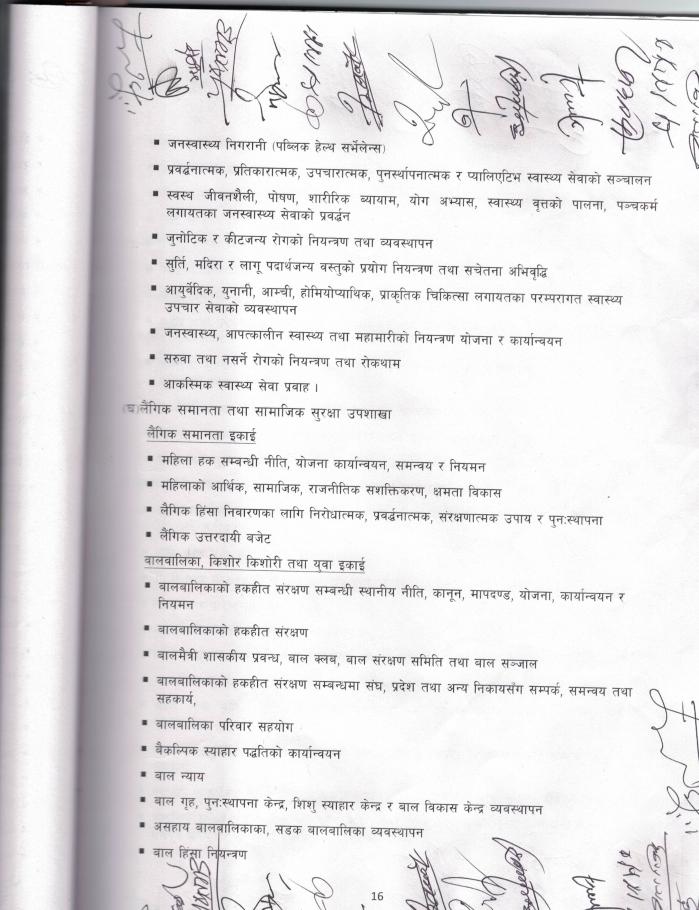 ▪ जनस्वास्थ्य निगरानी (पब्लिक हेल्थ सर्भेलेन्स)
▪ प्रवर्द्धनात्मक, प्रतिकारात्मक, उपचारात्मक, पुनर्स्थापनात्मक र प्यालिएटिभ स्वास्थ्य सेवाको सञ्चालन
▪ स्वस्थ जीवनशैली, पोषण, शारीरिक ब्यायाम, योग अभ्यास, स्वास्थ्य वृत्तको पालना, पञ्चकर्म
लगायतका जनस्वास्थ्य सेवाको प्रवर्द्धन
▪ जुनोटिक र कीटजन्य रोगको नियन्त्रण तथा व्यवस्थापन
▪ सुर्ति, मदिरा र लागू पदार्थजन्य वस्तुको प्रयोग नियन्त्रण तथा सचेतना अभिवृद्धि
▪ आयुर्वेदिक, युनानी, आम्ची, होमियोप्याथिक, प्राकृतिक चिकित्सा लगायतका परम्परागत स्वास्थ्य
उपचार सेवाको व्यवस्थापन
▪ जनस्वास्थ्य, आपत्कालीन स्वास्थ्य तथा महामारीको नियन्त्रण योजना र कार्यान्वयन
▪ सरुवा तथा नसर्ने रोगको नियन्त्रण तथा रोकथाम
▪ आकस्मिक स्वास्थ्य सेवा प्रवाह ।
(घ)लैंगिक समानता तथा सामाजिक सुरक्षा उपशाखा
लैंगिक समानता इकाई
▪ महिला हक सम्बन्धी नीति, योजना कार्यान्वयन, समन्वय र नियमन
▪ महिलाको आर्थिक, सामाजिक, राजनीतिक सशक्तिकरण, क्षमता विकास
▪ लैंगिक हिंसा निवारणका लागि निरोधात्मक, प्रवर्द्धनात्मक, संरक्षणात्मक उपाय र पुनःस्थापना
▪ लैंगिक उत्तरदायी बजेट
बालबालिका, किशोर किशोरी तथा युवा इकाई
▪ बालबालिकाको हकहीत संरक्षण सम्बन्धी स्थानीय नीति, कानून, मापदण्ड, योजना, कार्यान्वयन र
नियमन
▪ बालबालिकाको हकहीत संरक्षण
▪ बालमैत्री शासकीय प्रवन्ध, बाल क्लब, बाल संरक्षण समिति तथा बाल सञ्जाल
▪ बालबालिकाको हकहीत संरक्षण सम्बन्धमा संघ, प्रदेश तथा अन्य निकायसंग सम्पर्क, समन्वय तथा
सहकार्य,
▪ बालबालिका परिवार सहयोग
▪ बैकल्पिक स्याहार पद्धतिको कार्यान्वयन
▪ बाल न्याय
▪ बाल गृह, पुनःस्थापना केन्द्र, शिशु स्याहार केन्द्र र बाल विकास केन्द्र व्यवस्थापन
▪ असहाय बालबालिकाका, सडक बालबालिका व्यवस्थापन
▪ बाल हिंसा नियन्त्रण
16